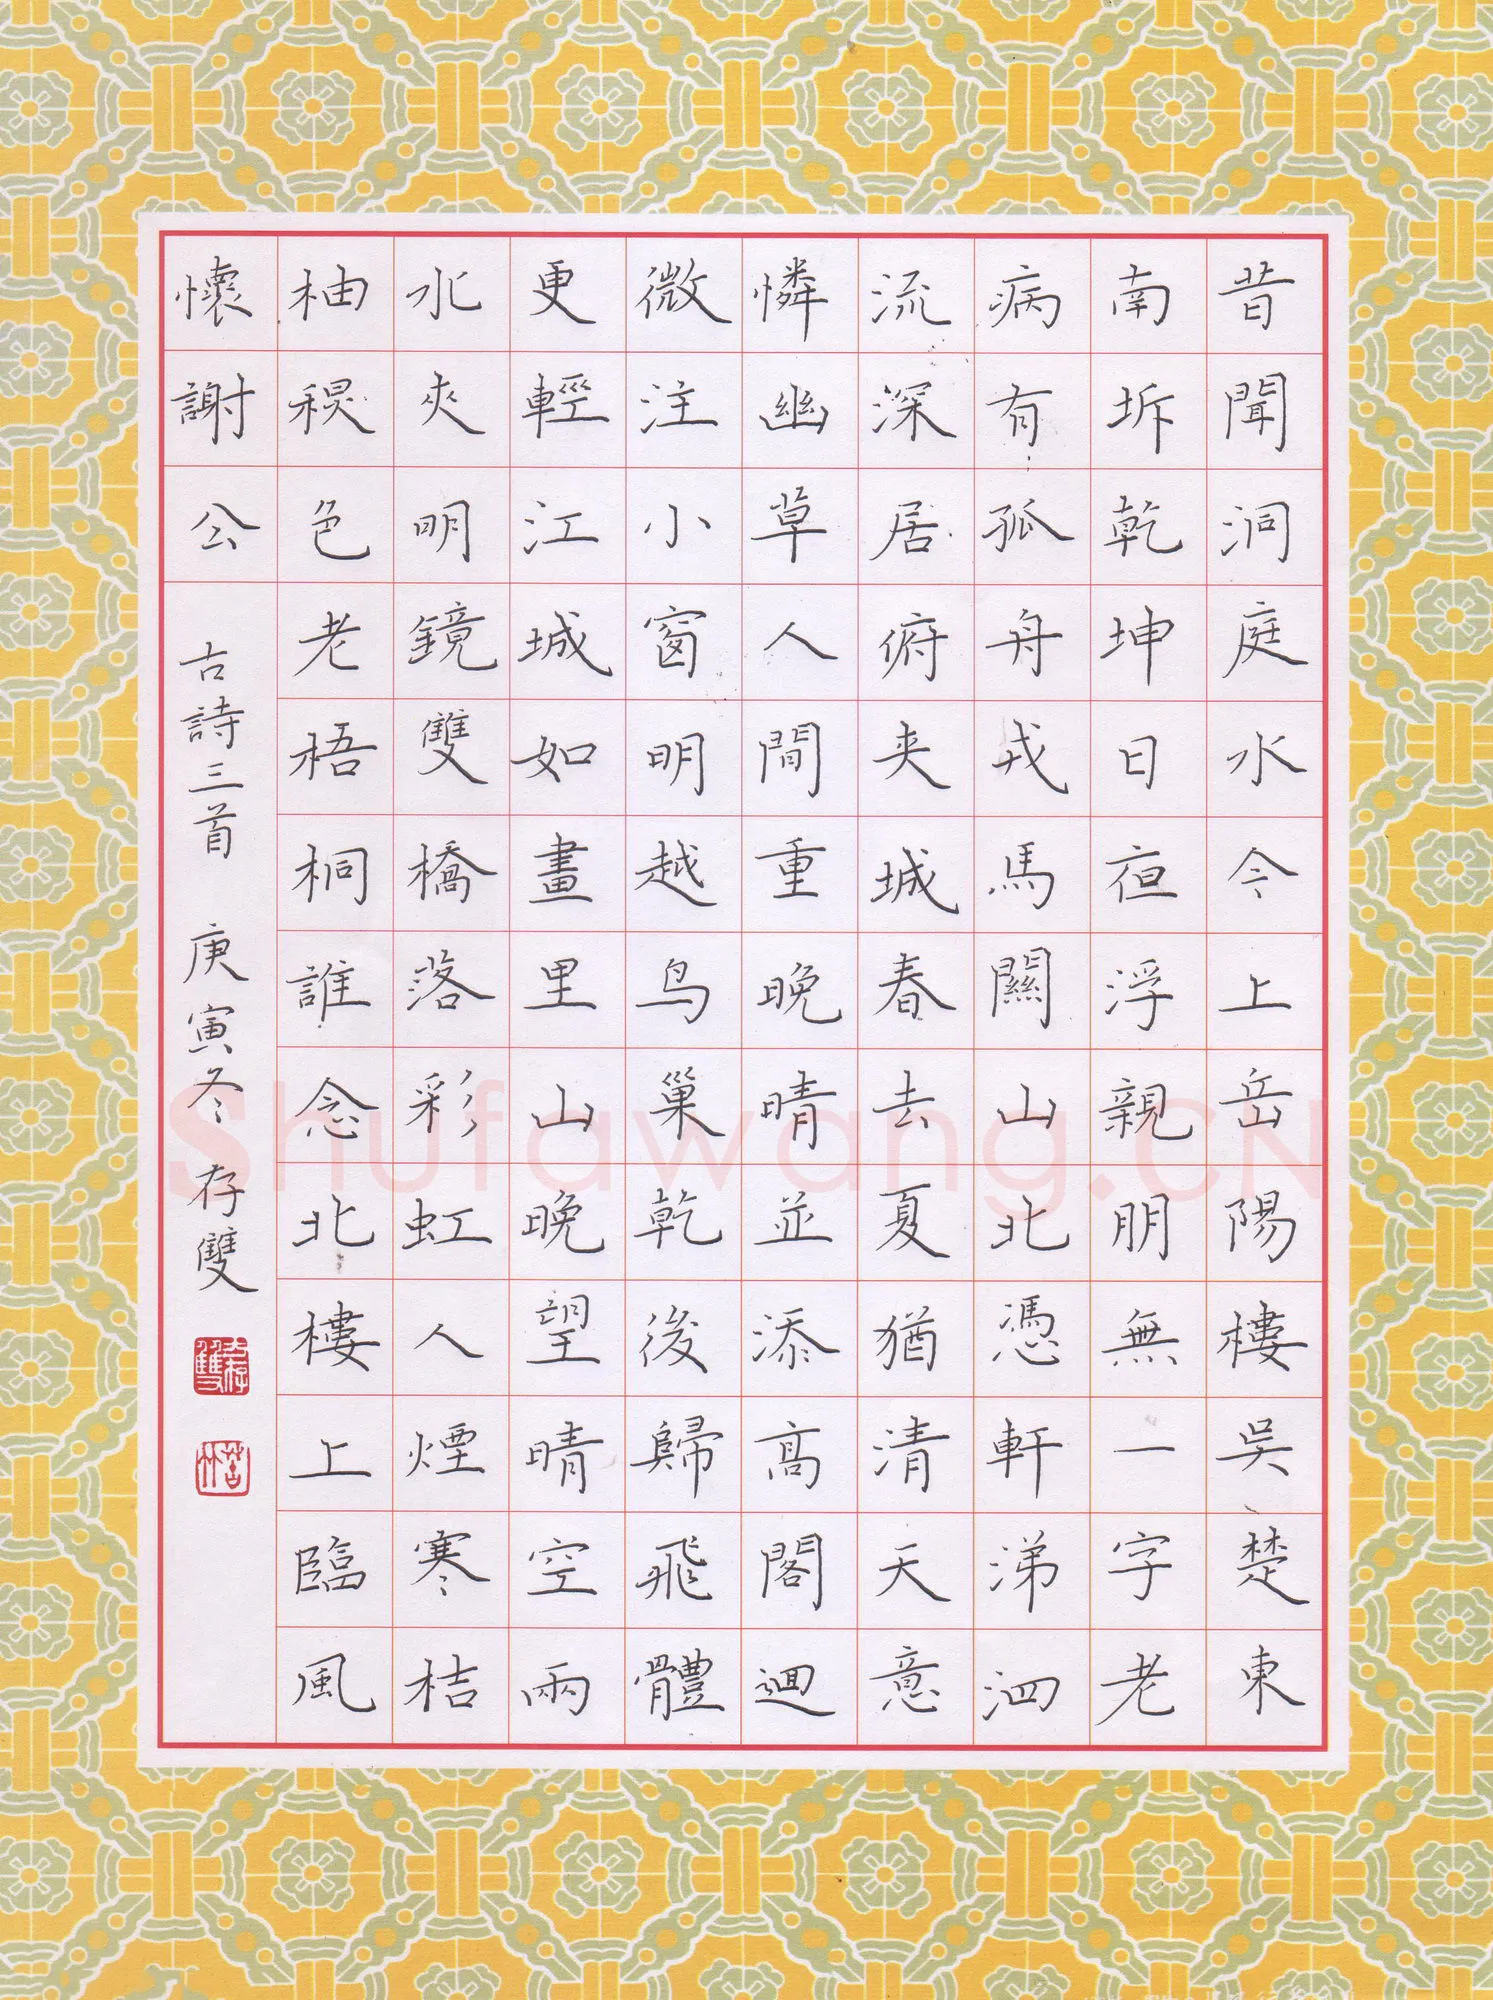 昔聞洞庭水今上岳陽樓吳楚東
南坼乾坤日夜浮親朋無一字老
病有孤舟戎馬關山北憑軒涕泗
流深居俯夾城春去夏猶清天意
憐幽草人間重晚晴並添高閣迴
微注小窗明越鸟巢乾後歸飛體
更輕江城如畫里山晚望晴空兩
水夾明鏡雙橋落彩虹人煙寒桔
柚秋色老梧桐誰念北樓上臨風
懷謝公 古詩三首 庚寅冬 存雙
Shufawang.CN